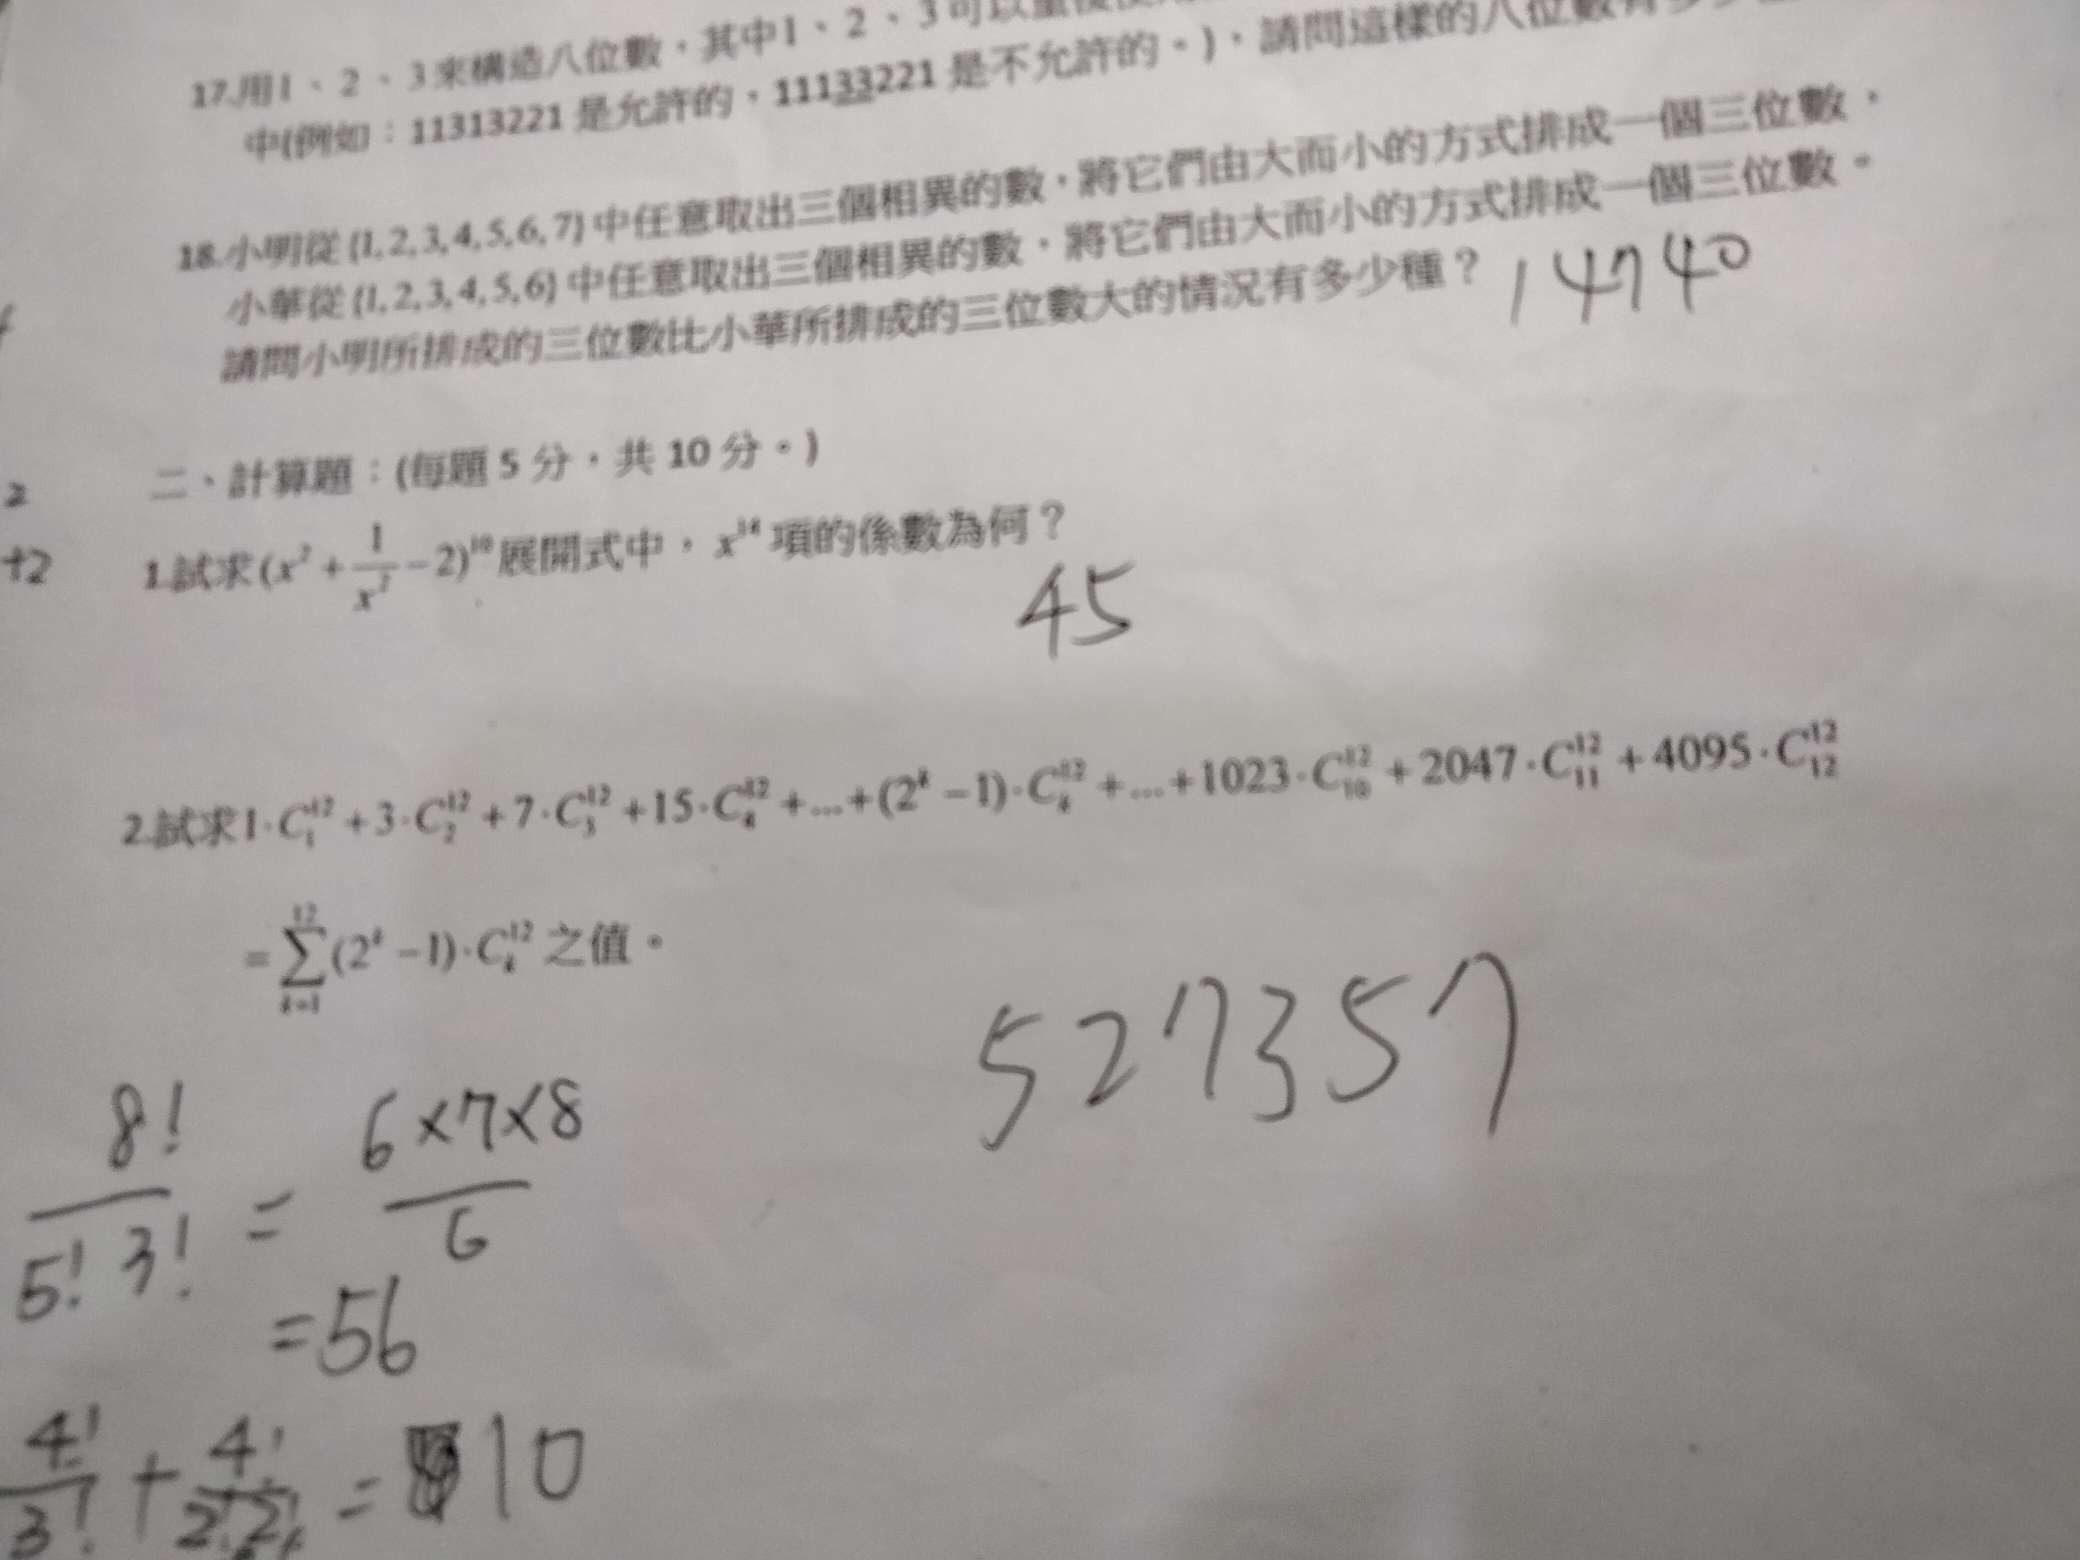 17.用1、2、3來構造八位數，其中1、2、3可以重複
中(例如：11313221 是允許的，11133221 是不允許的。)，請問這樣的八位數有多少
18.小明從 {1,2,3,4,5,6,7} 中任意取出三個相異的數，將它們由大而小的方式排成一個三位數，
小華從 {1,2,3,4,5,6} 中任意取出三個相異的數，將它們由大而小的方式排成一個三位數。
請問小明所排成的三位數比小華所排成的三位數大的情況有多少種？ 14740
二、計算題：(每題 5 分，共 10 分。)
2
+2
1.試求 (x² + 1/x² − 2)¹⁰ 展開式中， 項的係數為何？
45
2.試求 1·C₁¹² + 3·C₂¹² + 7·C₃¹² + 15·C₄¹² + ... + (2ᵏ − 1)·Cₖ¹² + ... + 1023·C₁₀¹² + 2047·C₁₁¹² + 4095·C₁₂¹²
= ∑ₖ₌₁¹² (2ᵏ − 1)·Cₖ¹² 之值。
527357
8!/(5! 3!) = (6×7×8)/6
=56
4!/3! + 4!/(2!2!) = 10